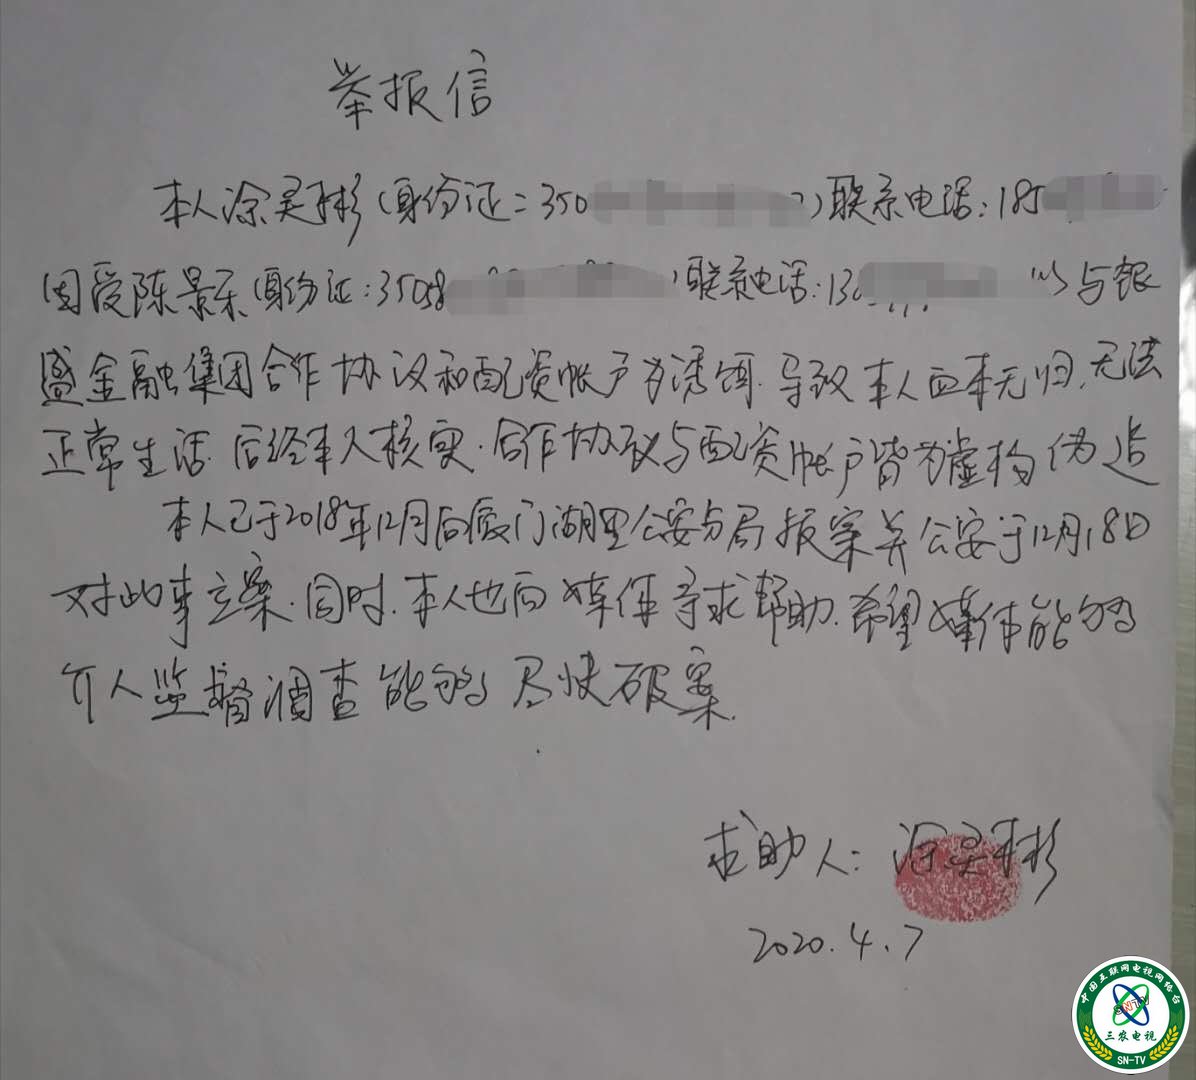 举报信
本人涂灵彬(身份证:350)联系电话:185
因受陈景乐(身份证:35058 联系电话:130 以与银
盛金融集团合作协议和配资帐户为诱饵.导致本人血本无归,无法
正常生活.后经本人核实.合作协议与配资帐户皆为虚构伪造
本人已于2018年12月向厦门湖里公安分局报案并公安于12月18日
对此事立案.同时.本人也向媒体寻求帮助.希望媒体能够
介入监督调查能够尽快破案.
求助人:涂灵彬
2020.4.7
中国互联网电视网络台
SNTV
三农电视
SN-TV